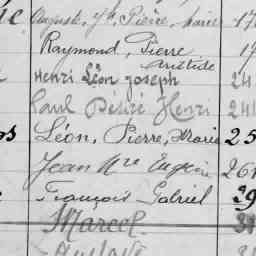 Auguste, Jh, Pierre, Marie 17
Raymond, Pierre 19
Aristide
Henri Léon Joseph 24
Paul Désiré Henri 24
Léon, Pierre, Marie 25
Jean Mre Eugène 26
François Gabriel 29
Marcel 31
Gustave